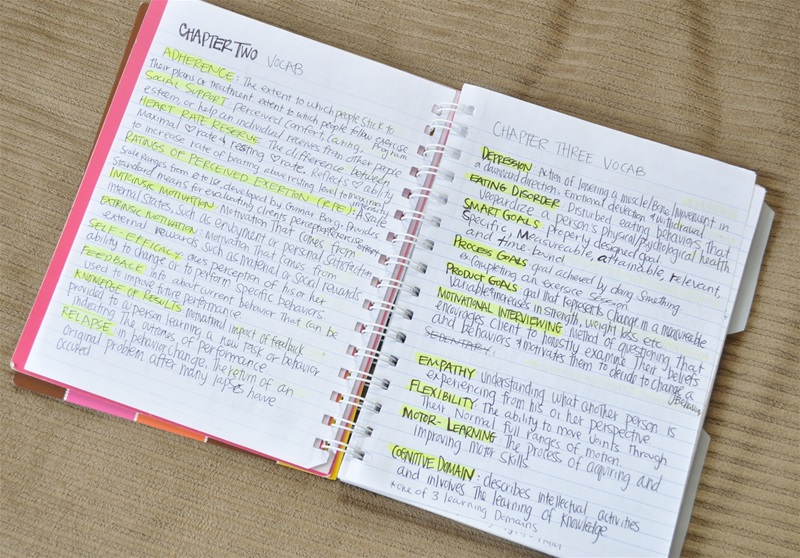 CHAPTER TWO VOCAB
ADHERENCE: The extent to which people stick to
their plans or treatment extent to which people follow exercise
SOCIAL SUPPORT: perceived comfort, caring, program
esteem, or help an individual receives from other people
HEART RATE RESERVE: The difference between
Maximal ♡ rate & resting ♡ rate. Reflects ♡ ability
to increase rate of beating above resting level to maximal
RATINGS OF PERCEIVED EXERTION (RPE): A scale
scale ranges from to be developed by Gunnar Borg. Provides
standard means for evaluating clients perception exercise
INTRINSIC MOTIVATION: Motivation that comes from
internal states, such as enjoyment or personal satisfaction
EXTRINSIC MOTIVATION: motivation that comes from
external rewards such as material or social rewards
SELF-EFFICACY: ones perception of his or her
ability to change or to perform specific behaviors.
FEEDBACK: Info about current behavior that can be
used to improve future performance.
KNOWLEDGE OF RESULTS: motivational impact of feedback
provided to a person learning a new task or behavior
indicating the outcomes of performance
RELAPSE: in behavior change, the return of an
original problem after many lapses have
occured
CHAPTER THREE VOCAB
DEPRESSION Action of lowering a muscle/Bone/movement in
a downward direction. Emotional dejection & withdrawal
EATING DISORDER: Disturbed eating behaviors that
jeopardize a person's physical/psycological health
SMART GOALS: properly designed goal
Specific, Measureable, attainable, relevant,
and time-bound
PROCESS GOALS goal achieved by doing something
ex: completing an exercise session
PRODUCT GOALS goal that represents change in a measureable
variable: increases in strength, weight loss etc.
MOTIVATIONAL INTERVIEWING method of questioning that
encourages client to honestly examine their beliefs
and behaviors & motivates them to decide to change a
behavior
SEDENTARY
EMPATHY understanding what another person is
experiencing from his or her perspective
FLEXIBILITY The ability to move joints through
their normal full ranges of motion.
MOTOR-LEARNING The process of acquiring and
improving motor skills.
COGNITIVE DOMAIN: describes intellectual activities
and involves the learning of knowledge
*one of 3 learning Domains